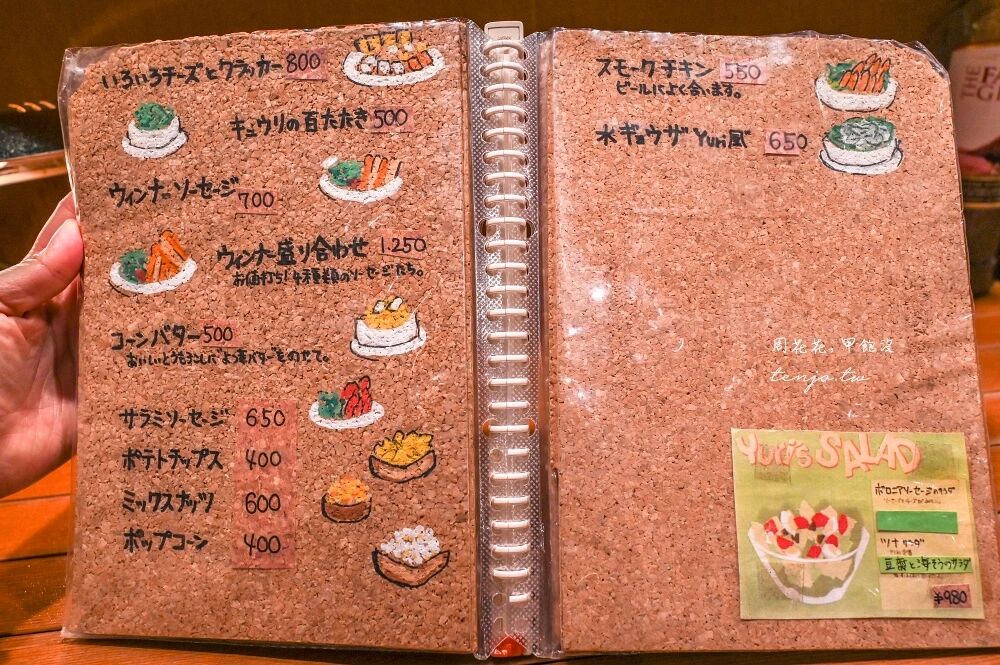 いろいろチーズとクラッカー 800
キュウリの百たたき 500
ウィンナーソーセージ 700
ウィンナー盛り合わせ 1.250
お値打ち! 4種類のソーセージたち。
コーンバター 500
おいしいとうもろこしバター
サラミソーセージ 650
ポテトチップス 400
ミックスナッツ 600
ポップコーン 400
スモークチキン 550
ビールによく合います。
水ギョウザ Yuri風 650
周花花。甲飽沒
tenjo.tw
YURI'S SALAD
ボロニアソーセージのサラダ
ツナサラダ
豆腐と海そうのサラダ
¥980
THE